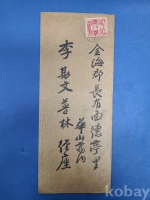 金海郡長有面德亭里
華山齋內
李斯文普林 經座
kobay